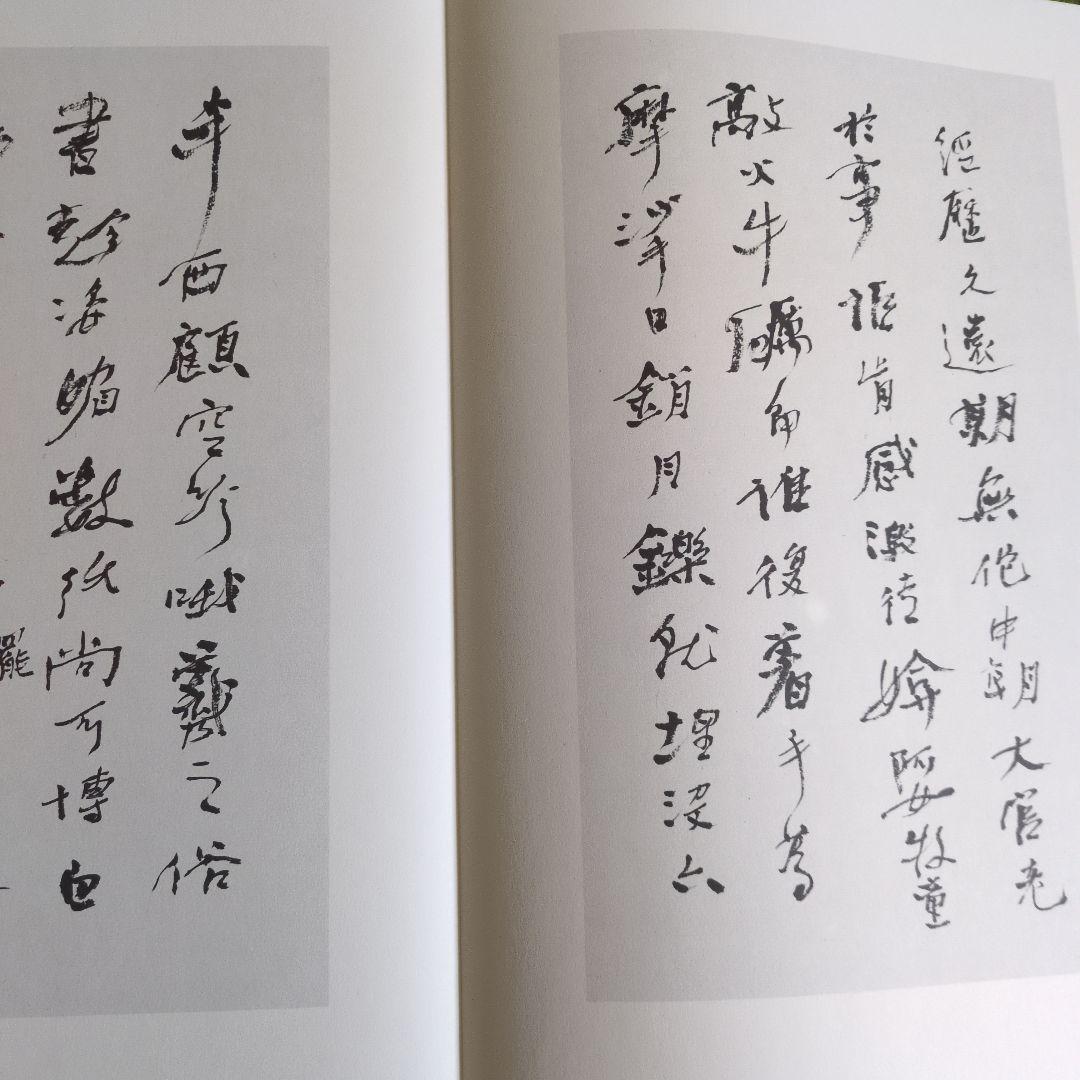 經歷久遠期無佗中朝大官老
於事詎肯感激徒媕娿牧童
敲火牛礪角誰復著手為
摩挲日銷月鑠就埋沒六
年西顧空吟哦羲之俗
書趁姿媚數紙尚可博白
罷